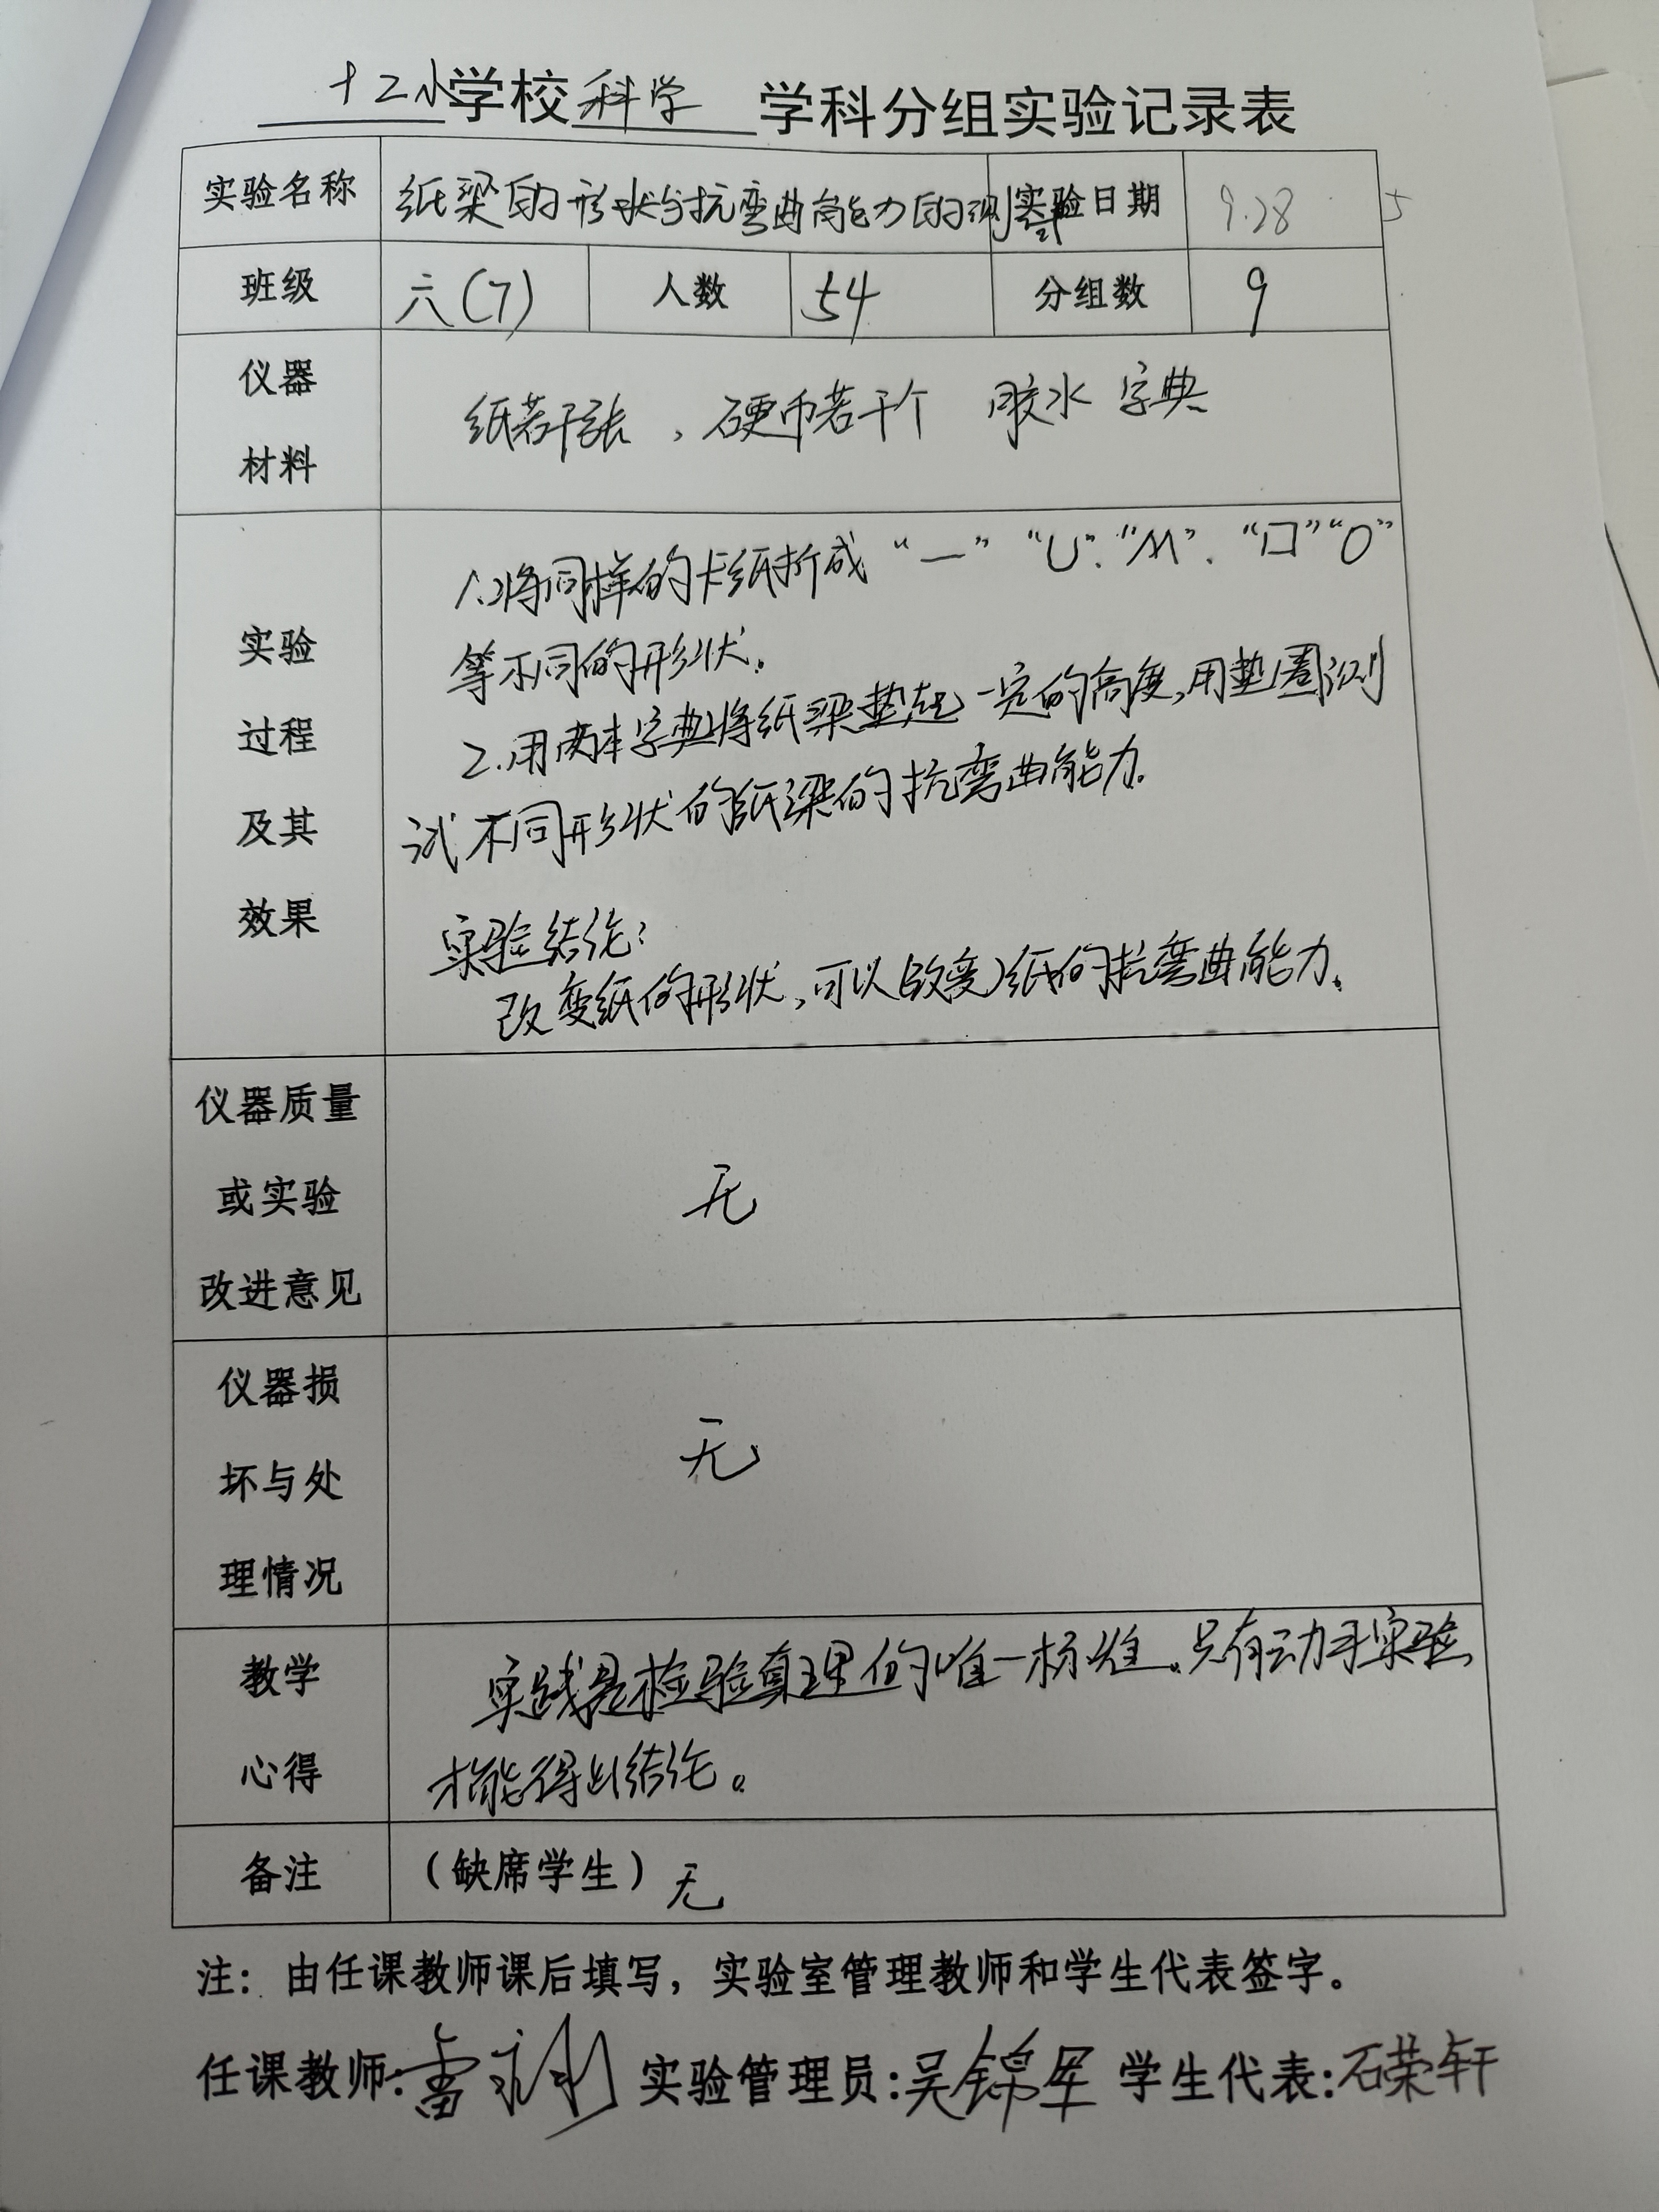 十二小学校科学 学科分组实验记录表
实验名称 纸梁的形状与抗弯曲能力的测试 实验日期 9.28 5
班级 六(7) 人数 54 分组数 9
仪器
材料
纸若干张、硬币若干个 胶水 字典
实验
过程
及其
效果
1.将同样的卡纸折成“一”“U”.“M”.“口”“O”
等不同的形状。
2.用两本字典将纸梁垫起一定的高度,用垫圈测
试不同形状的纸梁的抗弯曲能力.
实验结论:
改变纸的形状,可以改变纸的抗弯曲能力。
仪器质量
或实验
改进意见
无
仪器损
坏与处
理情况
无
教学
心得
实践是检验真理的唯一标准。只有动手实验
才能得出结论。
备注 (缺席学生)无
注:由任课教师课后填写,实验室管理教师和学生代表签字。
任课教师:雷 实验管理员:吴锦军 学生代表:石荣轩